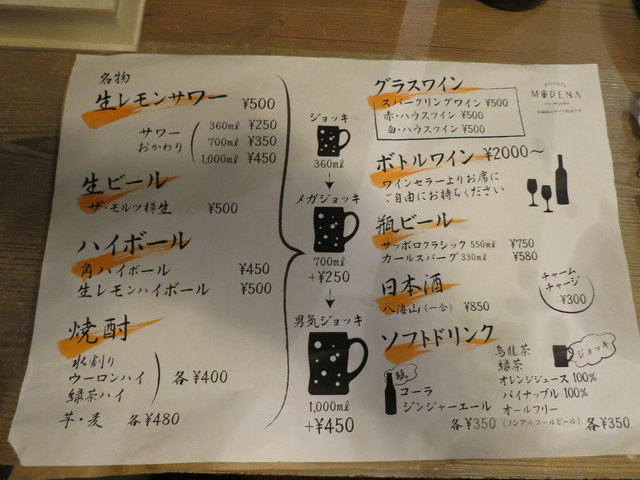 名物
生レモンサワー ¥500
サワー
おかわり
360ml ¥250
700ml ¥350
1,000ml ¥450
生ビール
ザ・モルツ樽生 ¥500
ハイボール
角ハイボール ¥450
生レモンハイボール ¥500
焼酎
水割り
ウーロンハイ
緑茶ハイ
各¥400
芋・麦 各¥480
ジョッキ
360ml
メガジョッキ
700ml
+¥250
男気ジョッキ
1,000ml
+¥450
グラスワイン
スパークリングワイン ¥500
赤・ハウスワイン ¥500
白・ハウスワイン ¥500
MODENA
ボトルワイン ¥2000〜
ワインセラーよりお席に
ご自由にお持ちください
瓶ビール
サッポロクラシック 550ml ¥750
カールスバーグ 330ml ¥580
日本酒
八海山(一合) ¥850
チャーム
チャージ
¥300
ソフトドリンク
瓶
コーラ
ジンジャーエール
各¥350
ジョッキ
烏龍茶
緑茶
オレンジジュース 100%
パイナップル 100%
オールフリー
(ノンアルコールビール) 各¥350